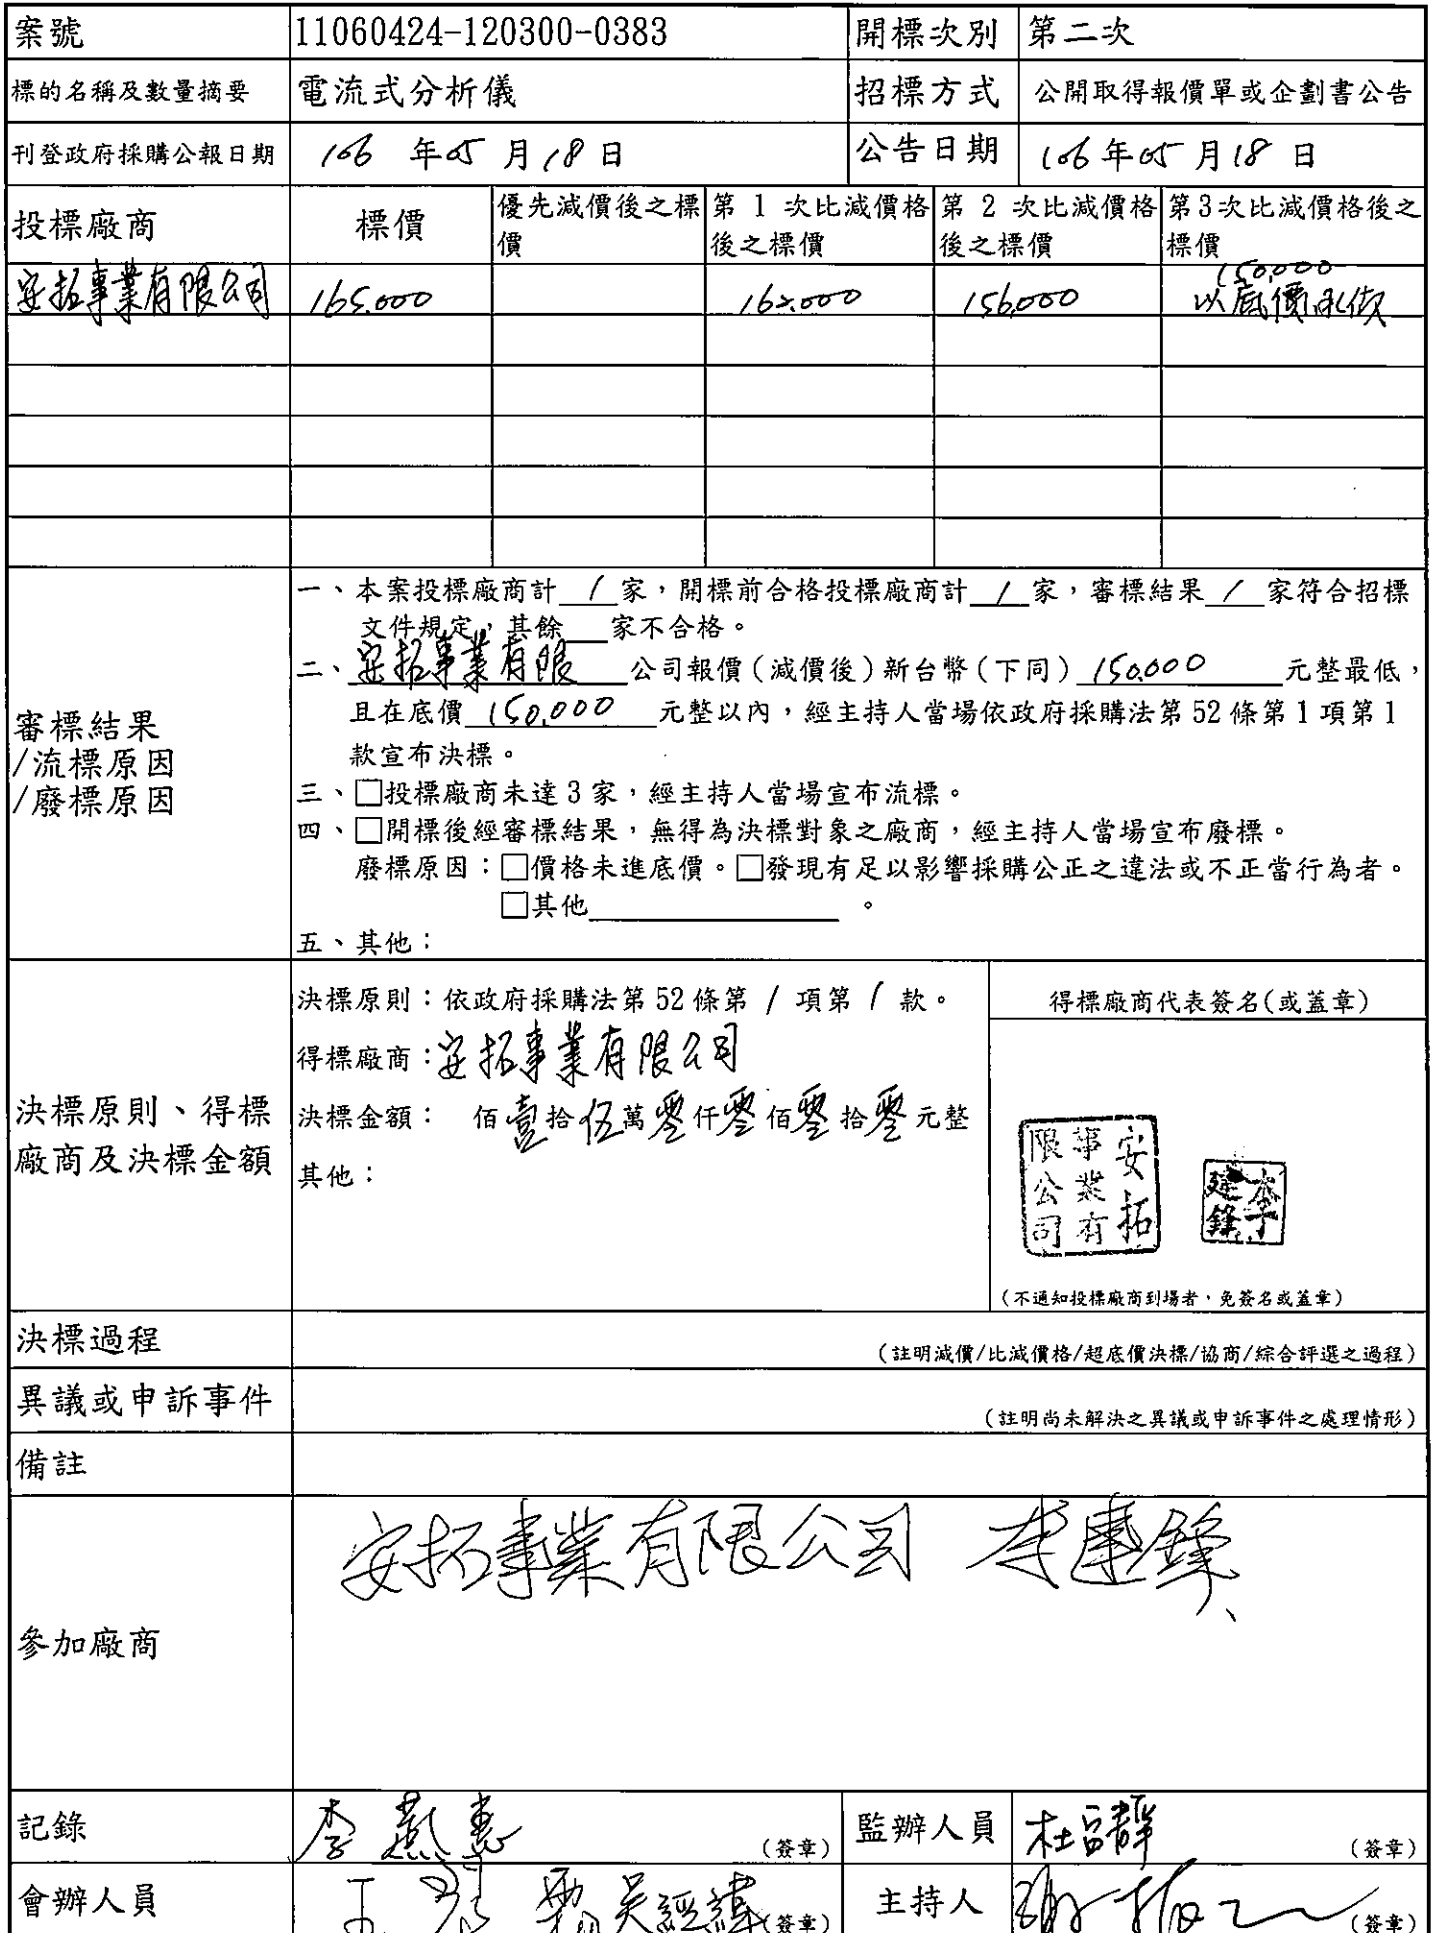 案號 11060424-120300-0383 開標次別 第二次
標的名稱及數量摘要 電流式分析儀 招標方式 公開取得報價單或企劃書公告
刊登政府採購公報日期 106 年 05 月 18 日 公告日期 106 年 05 月 18 日
投標廠商 標價 優先減價後之標價 第 1 次比減價格後之標價 第 2 次比減價格後之標價 第3次比減價格後之標價
150,000
安拓事業有限公司 165,000 162,000 156,000 以底價承做
審標結果
/流標原因
/廢標原因
一、本案投標廠商計 1 家，開標前合格投標廠商計 1 家，審標結果 1 家符合招標
文件規定，其餘 家不合格。
二、安拓事業有限 公司報價(減價後)新台幣(下同) 150,000 元整最低，
且在底價 150,000 元整以內，經主持人當場依政府採購法第 52 條第 1 項第 1
款宣布決標。
三、□投標廠商未達 3 家，經主持人當場宣布流標。
四、□開標後經審標結果，無得為決標對象之廠商，經主持人當場宣布廢標。
廢標原因：□價格未進底價。□發現有足以影響採購公正之違法或不正當行為者。
□其他 。
五、其他：
決標原則、得標
廠商及決標金額
決標原則：依政府採購法第 52 條第 1 項第 1 款。
得標廠商：安拓事業有限公司
決標金額： 佰壹拾伍萬零仟零佰零拾零元整
其他：
得標廠商代表簽名(或蓋章)
安拓事業有限公司
李建鋒
(不通知投標廠商到場者，免簽名或蓋章)
決標過程 (註明減價/比減價格/超底價決標/協商/綜合評選之過程)
異議或申訴事件 (註明尚未解決之異議或申訴事件之處理情形)
備註
參加廠商 安拓事業有限公司 李建鋒
記錄 李燕惠 (簽章) 監辦人員 (簽章)
會辦人員 吳經緯 (簽章) 主持人 (簽章)